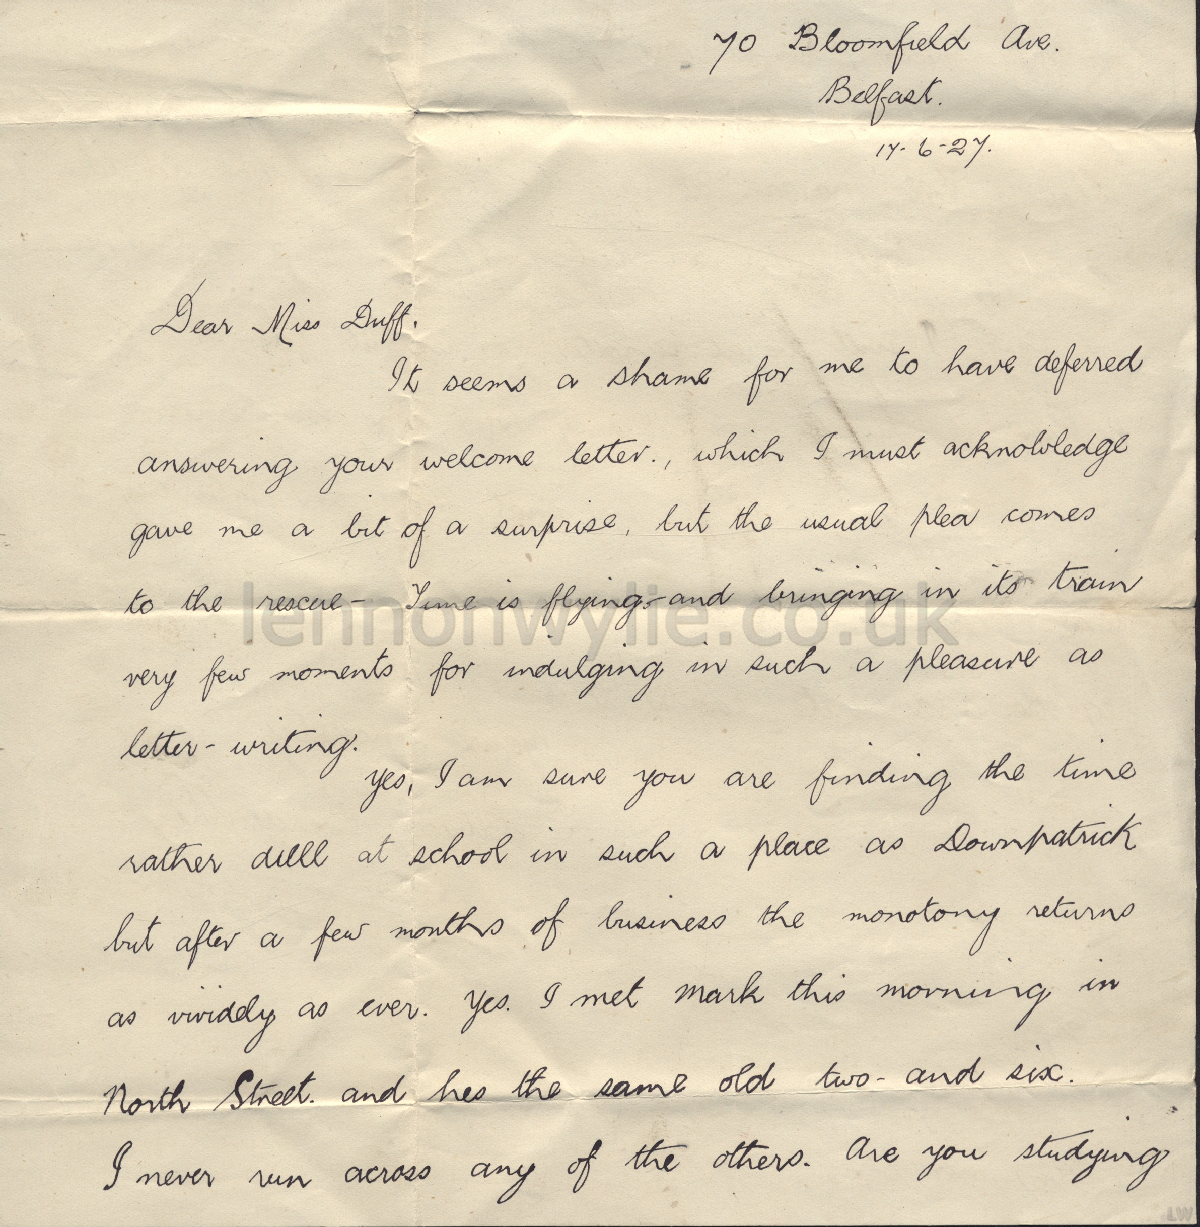 70 Bloomfield Ave.
Belfast.
17-6-27.
Dear Miss Duff.
It seems a shame for me to have deferred
answering your welcome letter., which I must acknowledge
gave me a bit of a surprise, but the usual plea comes
to the rescue- Time is flying,-and bringing in its train
lennonwylie.co.uk
very few moments for indulging in such a pleasure as
letter-writing.
Yes, I am sure you are finding the time
rather dull at school in such a place as Downpatrick
but after a few months of business the monotony returns
as vividly as ever. Yes. I met Mark this morning in
North Street. and hes the same old two-and six.
I never run across any of the others. Are you studying
LW